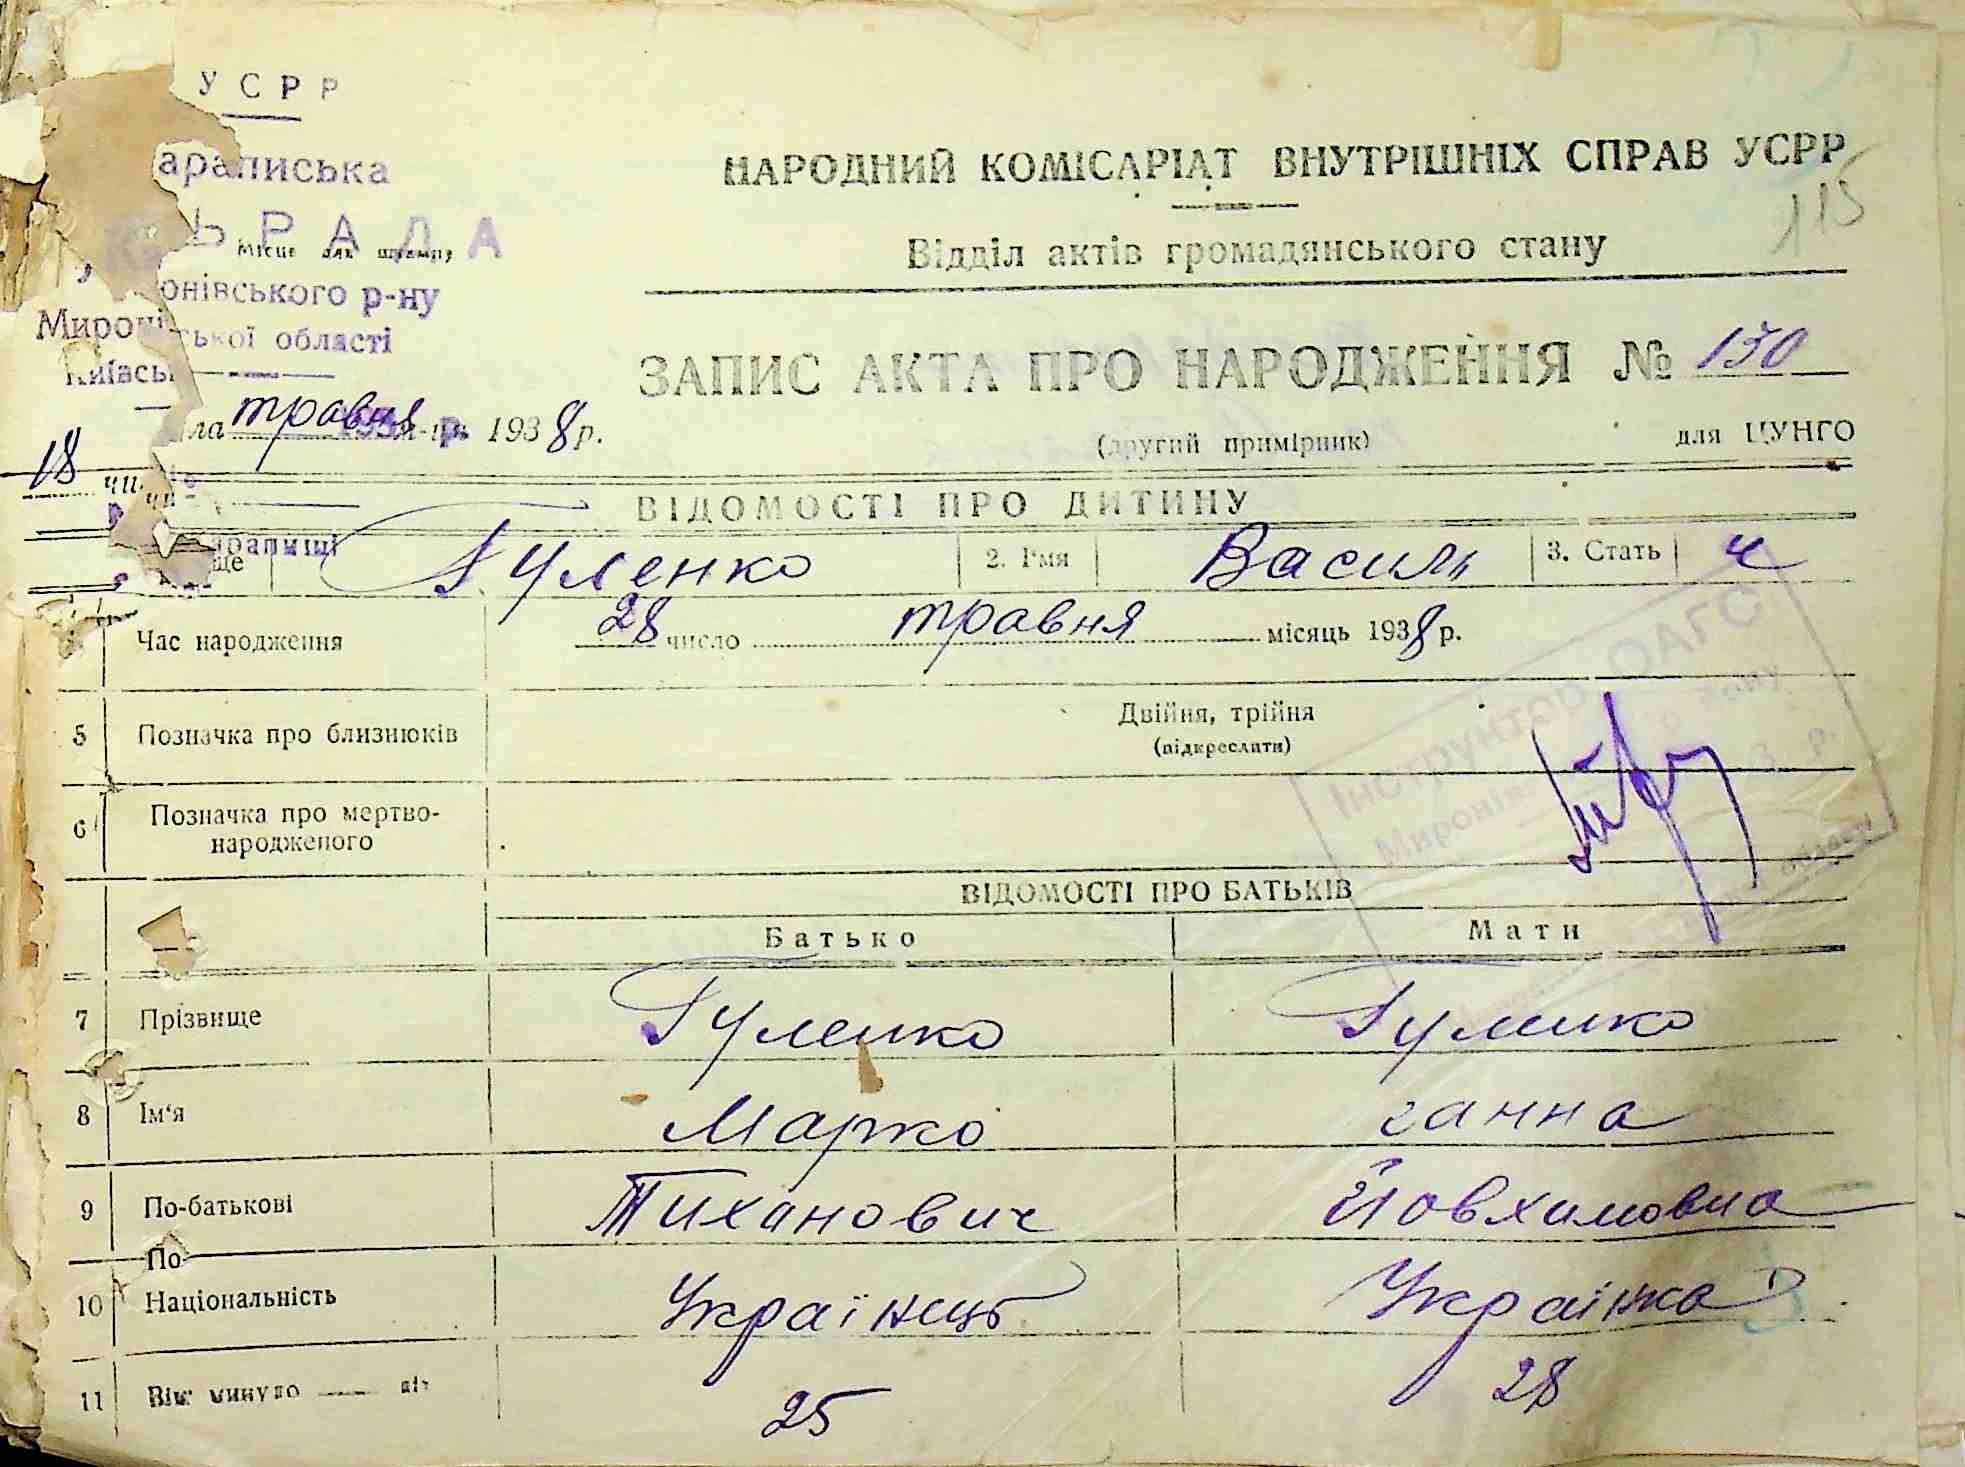 УСРР
НАРОДНИЙ КОМІСАРІАТ ВНУТРІШНІХ СПРАВ УСРР
115
араписька
Ь РАДА
Місце для штампу
Відділ актів громадянського стану
онівського р-ну
Мироні
ської області
Київсь
ЗАПИС АКТА ПРО НАРОДЖЕННЯ № 150
18 ла травня 1938 р.
(другий примірник) для ЦУНГО
ВІДОМОСТІ ПРО ДИТИНУ
ще Гуленко 2. Ім'я Василь 3. Стать ч
Час народження 28 число травня місяць 1938 р.
Інструктор ОАГС
5 Позначка про близнюків Двійня, трійня
(підкреслити)
6 Позначка про мертво-
народженого
ВІДОМОСТІ ПРО БАТЬКІВ
Батько Мати
7 Прізвище Гуленко Гуленко
8 Ім'я Марко Ганна
9 По-батькові Тиханович Йовхимовна
По
10 Національність Українець Українка
11 Вік: минуло літ 25 28